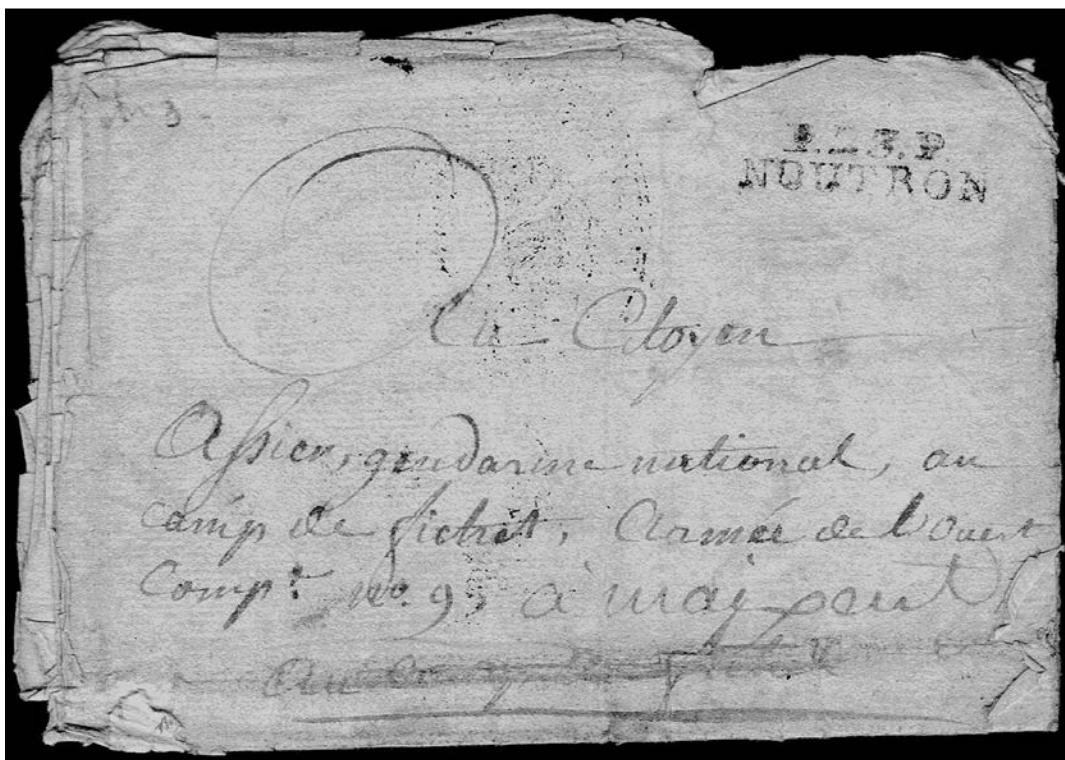 P.23.P
NOUTRON
Au Citoyen
Assier, gendarme national, au
Camp de fichet, Armée de l'Ouest
Comp.e no. 9, à